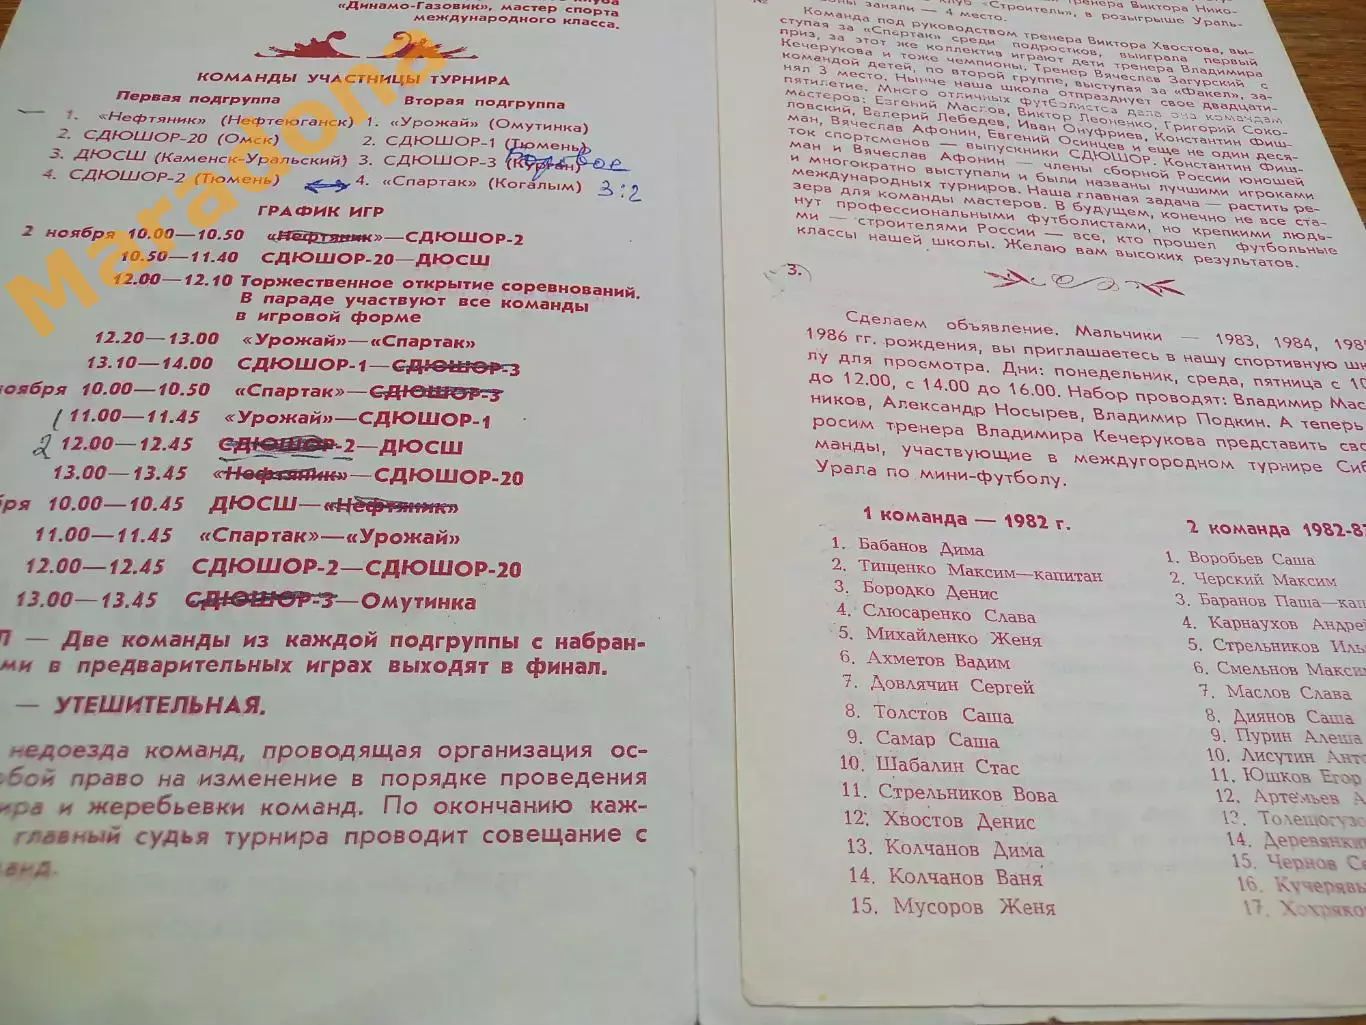 клуба
«Динамо-Газовик», мастер спорта
международного класса.
КОМАНДЫ УЧАСТНИЦЫ ТУРНИРА
Первая подгруппа
1. «Нефтяник» (Нефтеюганск)
2. СДЮШОР-20 (Омск)
3. ДЮСШ (Каменск-Уральский)
4. СДЮШОР-2 (Тюмень)
Вторая подгруппа
1. «Урожай» (Омутинка)
2. СДЮШОР-1 (Тюмень)
3. СДЮШОР-3 (Курган)
4. «Спартак» (Когалым) 3:2
ГРАФИК ИГР
2 ноября 10.00—10.50 «Нефтяник»—СДЮШОР-2
10.50—11.40 СДЮШОР-20—ДЮСШ
12.00—12.10 Торжественное открытие соревнований.
В параде участвуют все команды
в игровой форме
12.20—13.00 «Урожай»—«Спартак»
13.10—14.00 СДЮШОР-1—СДЮШОР-3
ноября 10.00—10.50 «Спартак»—СДЮШОР-3
1 11.00—11.45 «Урожай»—СДЮШОР-1
2 12.00—12.45 СДЮШОР-2—ДЮСШ
13.00—13.45 «Нефтяник»—СДЮШОР-20
10.00—10.45 ДЮСШ—«Нефтяник»
11.00—11.45 «Спартак»—«Урожай»
12.00—12.45 СДЮШОР-2—СДЮШОР-20
13.00—13.45 СДЮШОР-3—Омутинка
— Две команды из каждой подгруппы с набран-
ми в предварительных играх выходят в финал.
— УТЕШИТЕЛЬНАЯ.
недоезда команд, проводящая организация ос-
бой право на изменение в порядке проведения
ира и жеребьевки команд. По окончанию каж-
главный судья турнира проводит совещание с
анд.
Maradona
тренера Виктора Нико-
клуб «Строитель», в розыгрыше Ураль-
заняли — 4 место.
Команда под руководством тренера Виктора Хвостова, вы-
ступая за «Спартак» среди подростков, выиграла первый
приз, за этот же коллектив играют дети тренера Владимира
Кечерукова и тоже чемпионы. Тренер Вячеслав Загурский с
командой детей, по второй группе, выступая за «Факел», за-
нял 3 место. Нынче наша школа отпразднует свое двадцати-
пятилетие. Много отличных футболистов дала она командам
мастеров: Евгений Маслов, Виктор Леоненко, Григорий Соко-
ловский, Валерий Лебедев, Иван Онуфриев, Константин Фиш-
ман, Вячеслав Афонин, Евгений Осинцев и еще не один деся-
ток спортсменов — выпускники СДЮШОР. Константин Фиш-
ман и Вячеслав Афонин — члены сборной России юношей
и многократно выступали и были названы лучшими игроками
международных турниров. Наша главная задача — растить ре-
зерв для команды мастеров. В будущем, конечно не все ста-
нут профессиональными футболистами, но крепкими людь-
ми — строителями России — все, кто прошел футбольные
классы нашей школы. Желаю вам высоких результатов.
3.
Сделаем объявление. Мальчики — 1983, 1984, 198
1986 гг. рождения, вы приглашаетесь в нашу спортивную шк
лу для просмотра. Дни: понедельник, среда, пятница с 10
до 12.00, с 14.00 до 16.00. Набор проводят: Владимир Мас
ников, Александр Носырев, Владимир Подкин. А теперь
росим тренера Владимира Кечерукова представить сво
манды, участвующие в междугородном турнире Сиб
Урала по мини-футболу.
1 команда — 1982 г.
1. Бабанов Дима
2. Тищенко Максим—капитан
3. Бородко Денис
4. Слюсаренко Слава
5. Михайленко Женя
6. Ахметов Вадим
7. Довлячин Сергей
8. Толстов Саша
9. Самар Саша
10. Шабалин Стас
11. Стрельников Вова
12. Хвостов Денис
13. Колчанов Дима
14. Колчанов Ваня
15. Мусоров Женя
2 команда 1982-8
1. Воробьев Саша
2. Черский Максим
3. Баранов Паша—кап
4. Карнаухов Андрей
5. Стрельников Иль
6. Смельнов Максим
7. Маслов Слава
8. Диянов Саша
9. Пурин Алеша
10. Лисутин Анто
11. Юшков Егор
12. Артемьев А
13. Толещогузо
14. Деревянки
15. Чернов Се
16. Кучерявы
17. Хохряков